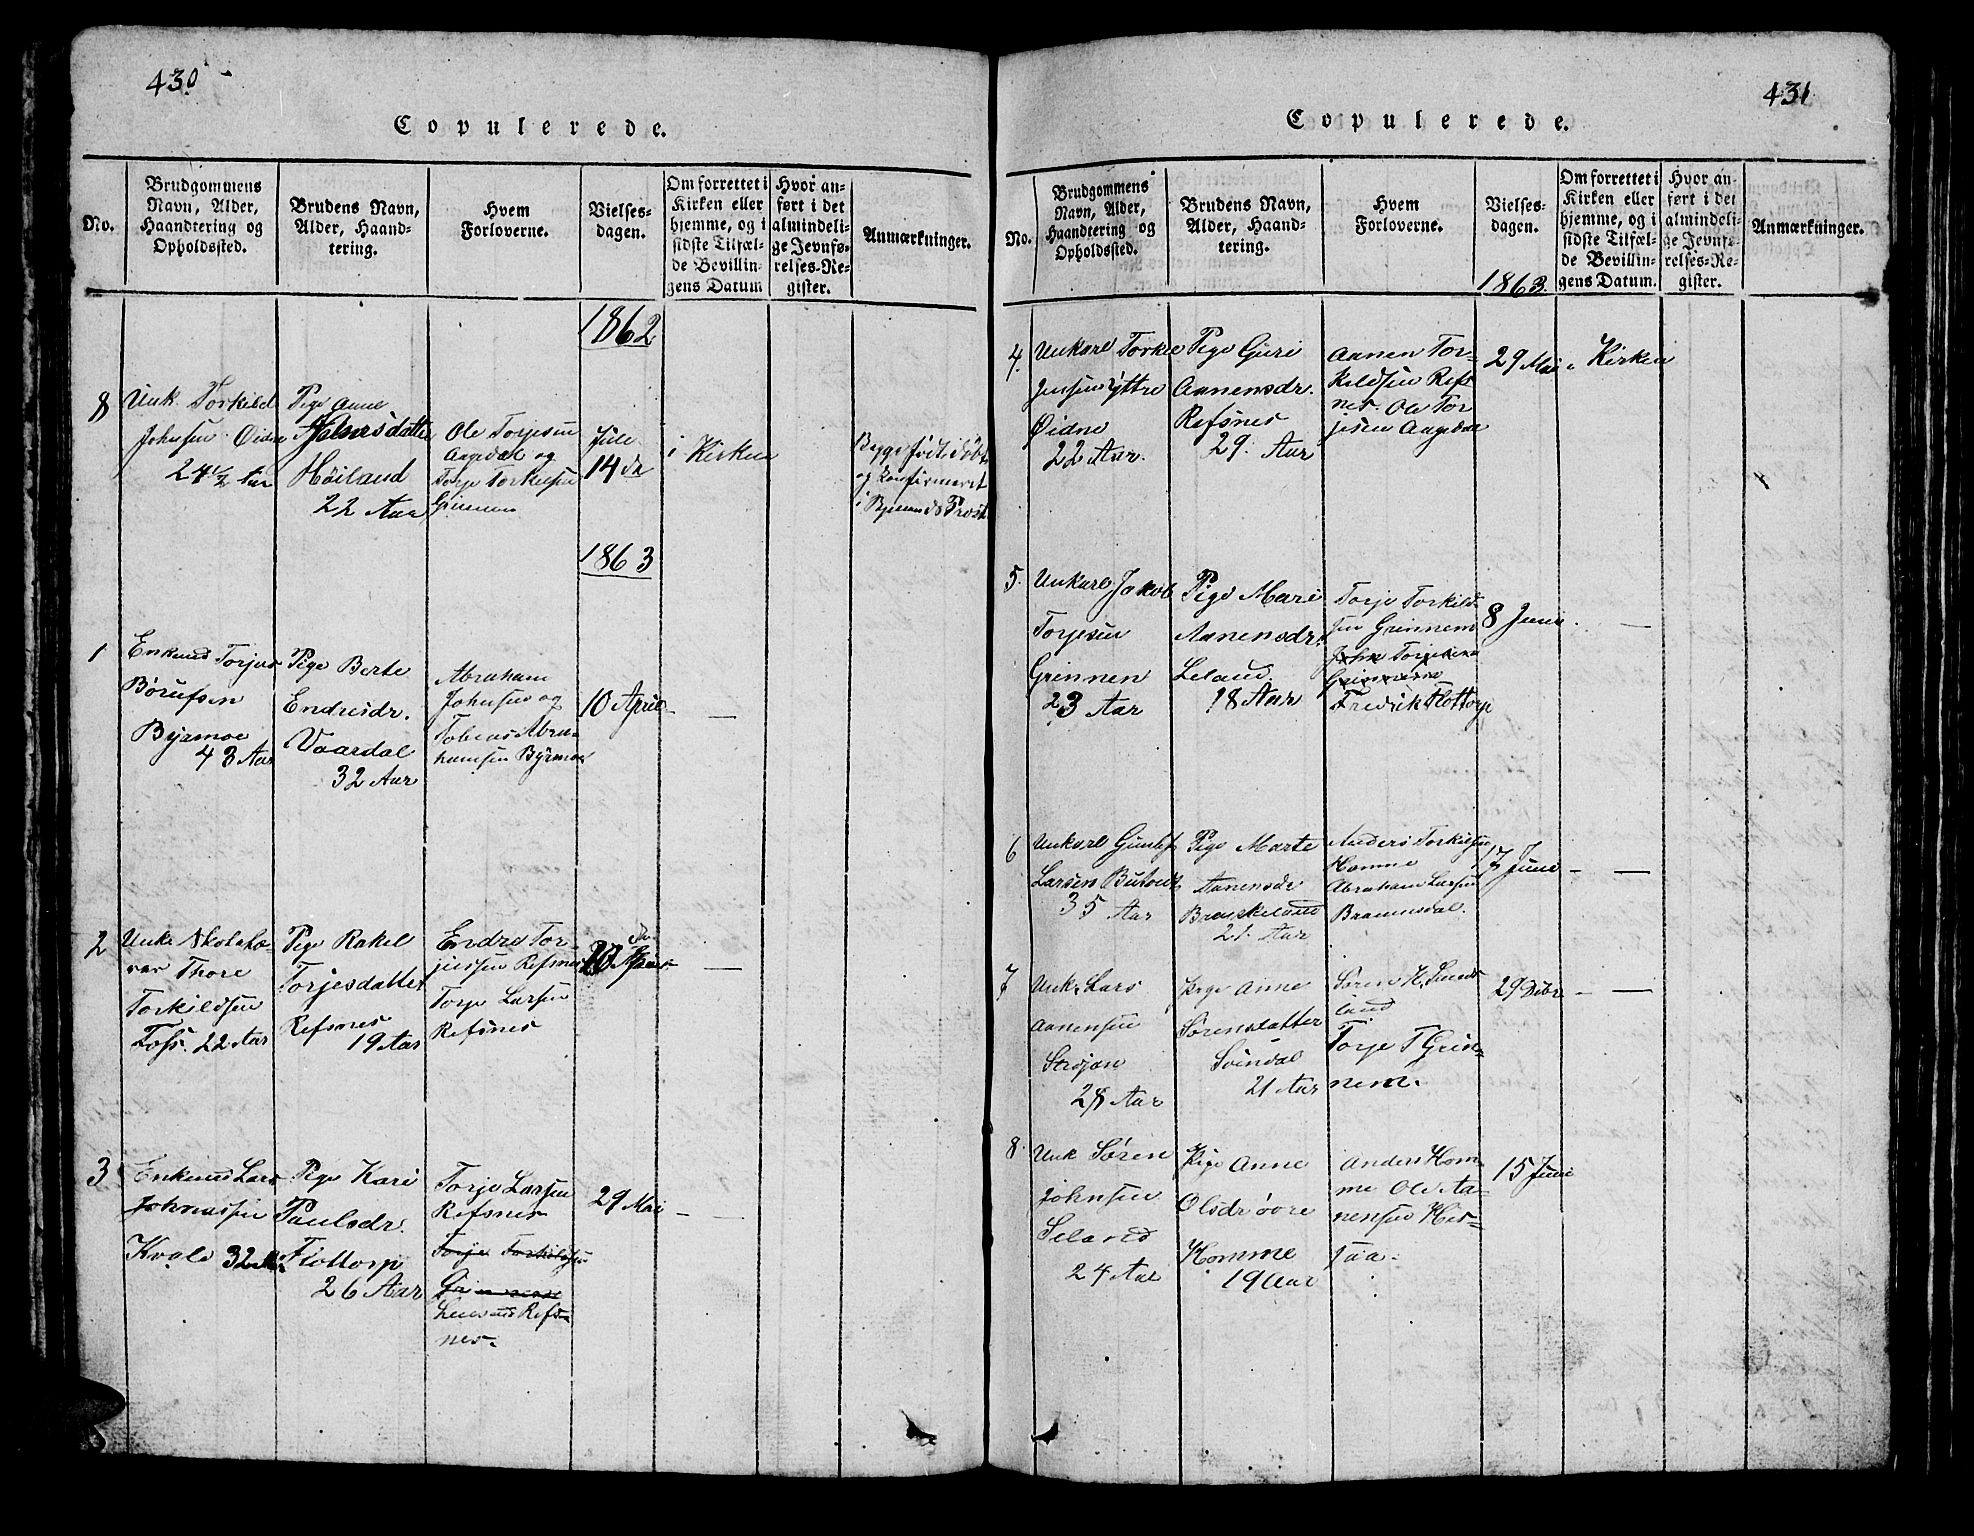 430
Copulerede.
No.
Brudgommens
Navn, Alder,
Haandtering og
Opholdssted.
Brudens Navn,
Alder, Haand-
tering.
Hvem
Forloverne.
Vielses-
dagen.
Om forrettet i
Kirken eller
hjemme, og i
sidste Tilfæl-
de Bevillin-
gens Datum
Hvor an-
ført i det
almindeli-
ge Jevnfø-
relses-Re-
gister.
Anmærkninger.
1862
8
Unk. Torkild
Johnsen Øidne
24 1/2 Aar
Pige Anne
Høiland
22 Aar
Ole Torjesen
Aagedal og
Torje Torkelsen
Grinnem
Jule
14 da
i Kirken
Begge født døbt
og konfirmeret
i Bjellands Præst
1863
1
Enkemd Torjus
Børufsen
Byrmoe
43 Aar
Pige Berte
Endresdr.
Vaardal
32 Aar
Abraham
Johnsen og
Tobias Abra-
hamsen Byrmoe
10 April
—
2
Unke Skolelæ-
rer Thore
Torkildsen
Foss. 22 Aar
Pige Rakel
Torjesdatter
Refsnes
19 Aar
Endre Tor-
jussen Refsnes
Torje Larsen
Refsnes
April
—
3
Enkemd Lars
Johnassen
Kvale 32 A.
Pige Kari
Paulsdr.
Flottorp
26 Aar
Torje Larsen
Refsnes
Torje Torkildsen
Refs-
nes.
29 Mai
—
431
Copulerede.
No.
Brudgommens
Navn, Alder,
Haandtering og
Opholdssted.
Brudens Navn,
Alder, Haand-
tering.
Hvem
Forloverne.
Vielses-
dagen.
1863.
Om forrettet i
Kirken eller
hjemme, og i
sidste Tilfæl-
de Bevillin-
gens Datum.
Hvor an-
ført i det
almindeli-
ge Jevnfø-
relses-Re-
gister.
Anmærkninger.
4.
Unkarl Torkel
Jensen Yttre
Øidne
22 Aar.
Pige Guri
Aanensdr.
Refsnes
29. Aar
Aanen Tor-
kildsen Refs
nes. Ole Tor
jesen Aagedal
29 Mai
Kirken
5.
Unkarl Jakob
Torjesen
Grinnen
23 Aar
Pige Mari
Aanensdr.
Leland.
18 Aar
Torje Torkild-
sen Grinnem
John Torjesen
Grinnem
Fredrik Flottorp
8 Juni.
—
6
Unkarl Gunlef
Larsen
35 Aar
Pige Marte
Aanensdr
21. Aar
Anders Torkilsen
Homme
Abraham Larsen
17 Juni
—
7
Unk. Lars
Aanensen
28 Aar
Pige Anne
Sørensdatter
Svindal
21 Aar
Søren H.
land
Torje T Grin-
nem.
29 Dcbr
—
8.
Unk Søren
Johnsen
Seland
24 Aar
Pige Anne
Olsdr øvre
Homme
19 Aar
Anders Hom-
me Ole Aa-
nensen
15 Juni